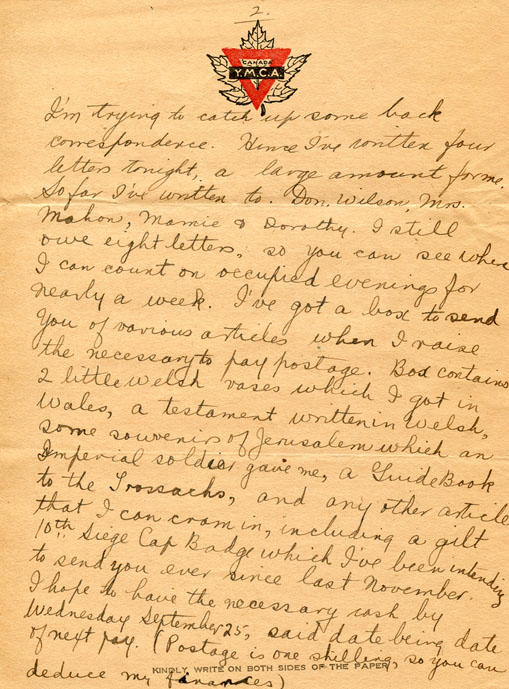 2.
CANADA
Y.M.C.A.
I'm trying to catch up some back
correspondence. Hence I've written four
letters tonight, a large amount for me.
So far I've written to. Don. Wilson, Mrs.
Mahon, Mamie & Dorothy. I still
owe eight letters, so you can see where
I can count on occupied evenings for
nearly a week. I've got a box to send
you of various articles when I raise
the necessary to pay postage. Box contains
2 little Welsh vases which I got in
Wales, a testament written in Welsh,
some souvenirs of Jerusalem which an
Imperial soldier gave me, a Guide Book
to the Trossachs, and any other article
that I can cram in, including a gilt
10th Siege Cap Badge which I've been intending
to send you ever since last November.
I hope to have the necessary cash by
Wednesday September 25, said date being date
of next pay. (Postage is one shilling, so you can
KINDLY WRITE ON BOTH SIDES OF THE PAPER
deduce my finances)